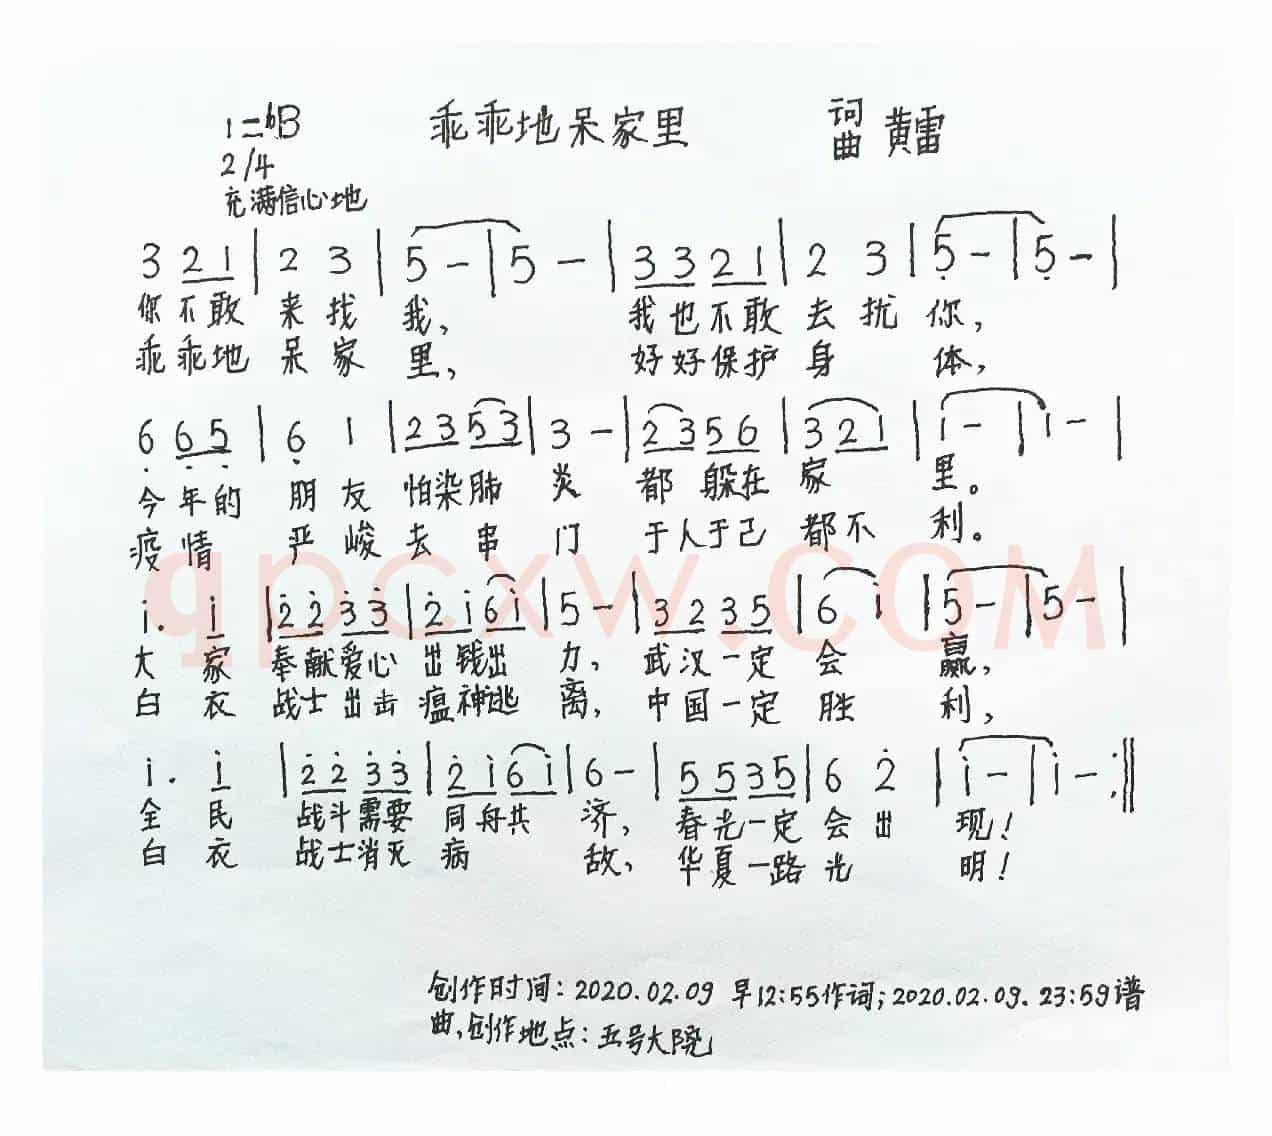 1=ᵇB 乖乖地呆家里 词曲 黄雷
2/4
充满信心地
3 2 1 | 2 3 | 5 - | 5 - | 3 3 2 1 | 2 3 | 5̣ - | 5̣ - |
你不敢 来找 我, 我也不敢 去扰 你,
乖乖地 呆家 里, 好好保护 身 体,
6̣ 6̣ 5̣ | 6̣ 1 | 2 3 5 3 | 3 - | 2 3 5 6 | 3 2 1 | i - | i - |
今年的 朋友 怕染肺 炎 都 躲在 家 里。
疫情 严峻 去串 门 于人于己 都不 利。
qpcxw.com
i. i | 2̇ 2̇ 3̇ 3̇ | 2̇ i 6 i | 5 - | 3 2 3 5 | 6 i | 5 - | 5 - |
大 家 奉献爱心 出钱出 力, 武汉一定 会 赢,
白 衣 战士出击 瘟神逃 离, 中国一定 胜 利,
i. i | 2̇ 2̇ 3̇ 3̇ | 2̇ i 6 i | 6 - | 5 5 3 5 | 6 2̇ | i - | i - :||
全 民 战斗需要 同舟共 济, 春光一定 会出 现!
白 衣 战士消灭 病 敌, 华夏一路 光 明!
创作时间: 2020.02.09 早12:55作词; 2020.02.09. 23:59谱
曲, 创作地点: 五号大院